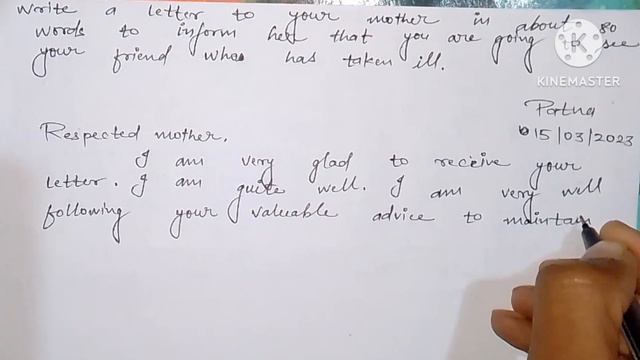 Write a letter to your mother in about 80
words to inform her that you are going to see
your friend who has taken ill.
KINEMASTER
Patna
15/03/2023
Respected mother.
I am very glad to receive your
letter. I am quite well. I am very well
following your valuable advice to maintain